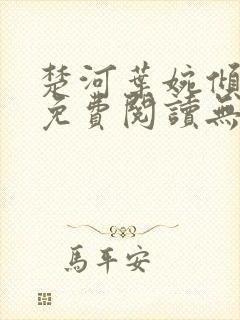 楚河葉婉傾
免費閱讀無
馬平安